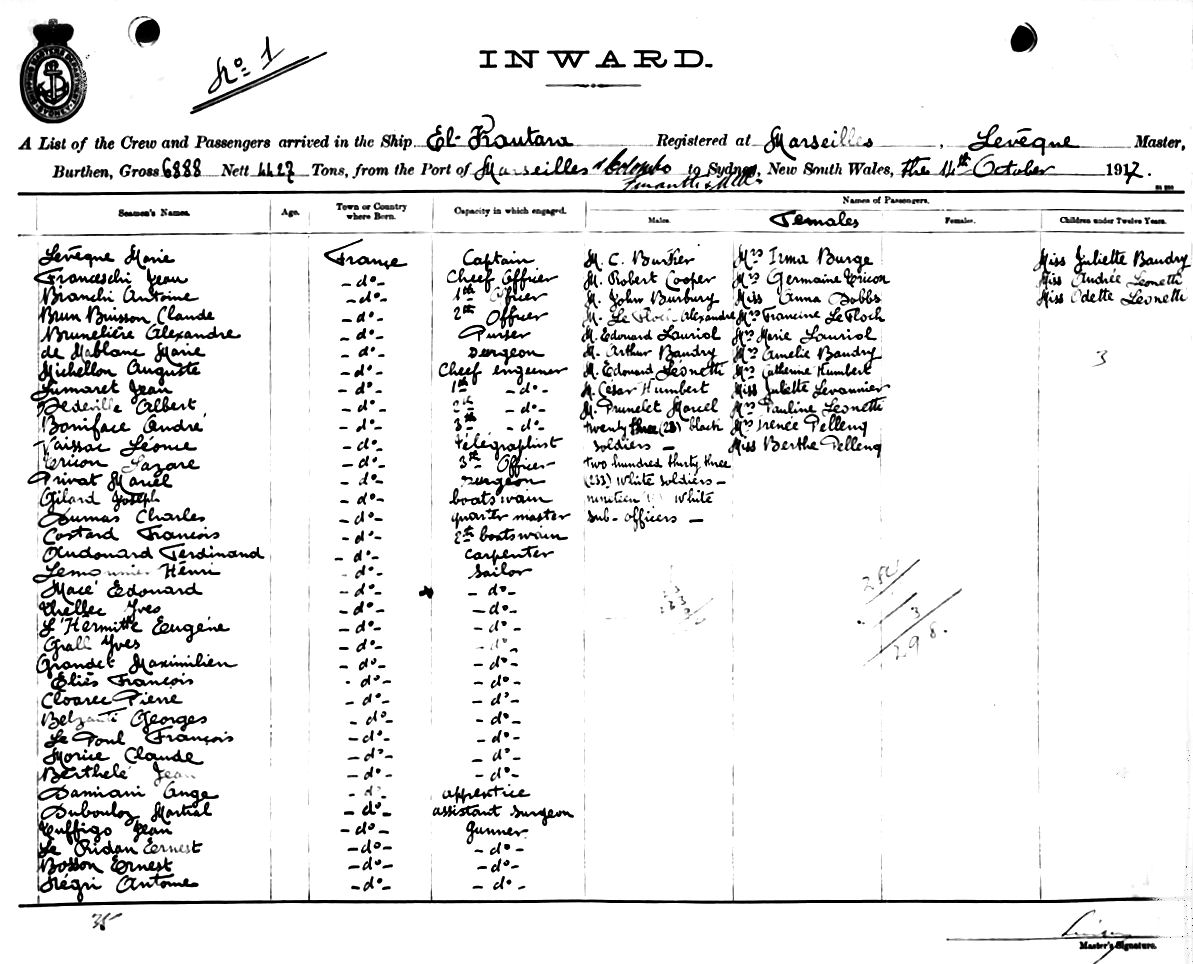 No 1
INWARD.
A List of the Crew and Passengers arrived in the Ship El-Kantara Registered at Marseilles, Levêque Master,
Burthen, Gross 6888 Nett 4427 Tons, from the Port of Marseilles & Colombo to Sydney, New South Wales, the 14th October 1917.
Fremantle &
Names of Passengers.
Seamen's Names. Age. Town or Country where Born. Capacity in which engaged. Males. Females Females. Children under Twelve Years.
Levêque Marie France Captain M. C. Burkier Mrs Irma Burge Miss Juliette Baudry
Franceschi Jean -do- Cheef Officer M. Robert Cooper Mrs Germaine Cricon Miss Andrée Leonetti
Branchi Antoine -do- 1st Officer M. John Burbury Miss Anna Dobbs Miss Odette Léonetti
Brun Buisson Claude -do- 2th Officer M. Le Floch Alexandre Mrs Francine Le Floch
Brunelière Alexandre -do- Purser M. Edouard Lauriol Mrs Marie Lauriol
de Mablanc Marie -do- Surgeon M. Arthur Baudry Mrs Amelie Baudry 3
Michellon Auguste -do- Cheef engeener M. Edouard Léonetti Mrs Catherine Humbert
Lumaret Jean -do- 1th -do- M. César Humbert Miss Juliette Levannier
Bedeville Albert -do- 2th -do- M. Prunelet Marcel Mrs Pauline Leonetti
Boniface André -do- 3th -do- twenty three (23) black Mrs Irenée Pellenq
Vaissac Léonce -do- télégraphist soldiers – Miss Berthe Pellenq
Cricon Lazare -do- 3th Officer two hundred thirty three
Privat Marcel -do- Surgeon (233) white soldiers –
Gilard Joseph -do- boatswain nineteen white
Dumas Charles -do- quarter master sub-officers –
Costard François -do- 2th boatswain
Audouard Ferdinand -do- carpenter
Lemonnier Henri -do- Sailor
Macé Edouard -do- -do- 284
Thellec Yves -do- -do- 3
L'Hermitte Eugène -do- -do- 298.
Grall Yves -do- -do-
Grandet Maximilien -do- -do-
Eliès François -do- -do-
Cloarec Pierre -do- -do-
Georges -do- -do-
Le Poul François -do- -do-
Morice Claude -do- -do-
Berthelé Jean -do- -do-
Damiani Ange -do- apprentice
Dubouloz Martial -do- assistant surgeon
Tuffigo Jean -do- Gunner
Le Ridan Ernest -do- -do-
Bosson Ernest -do- -do-
Négri Antoine -do- -do-
35
Master's Signature.